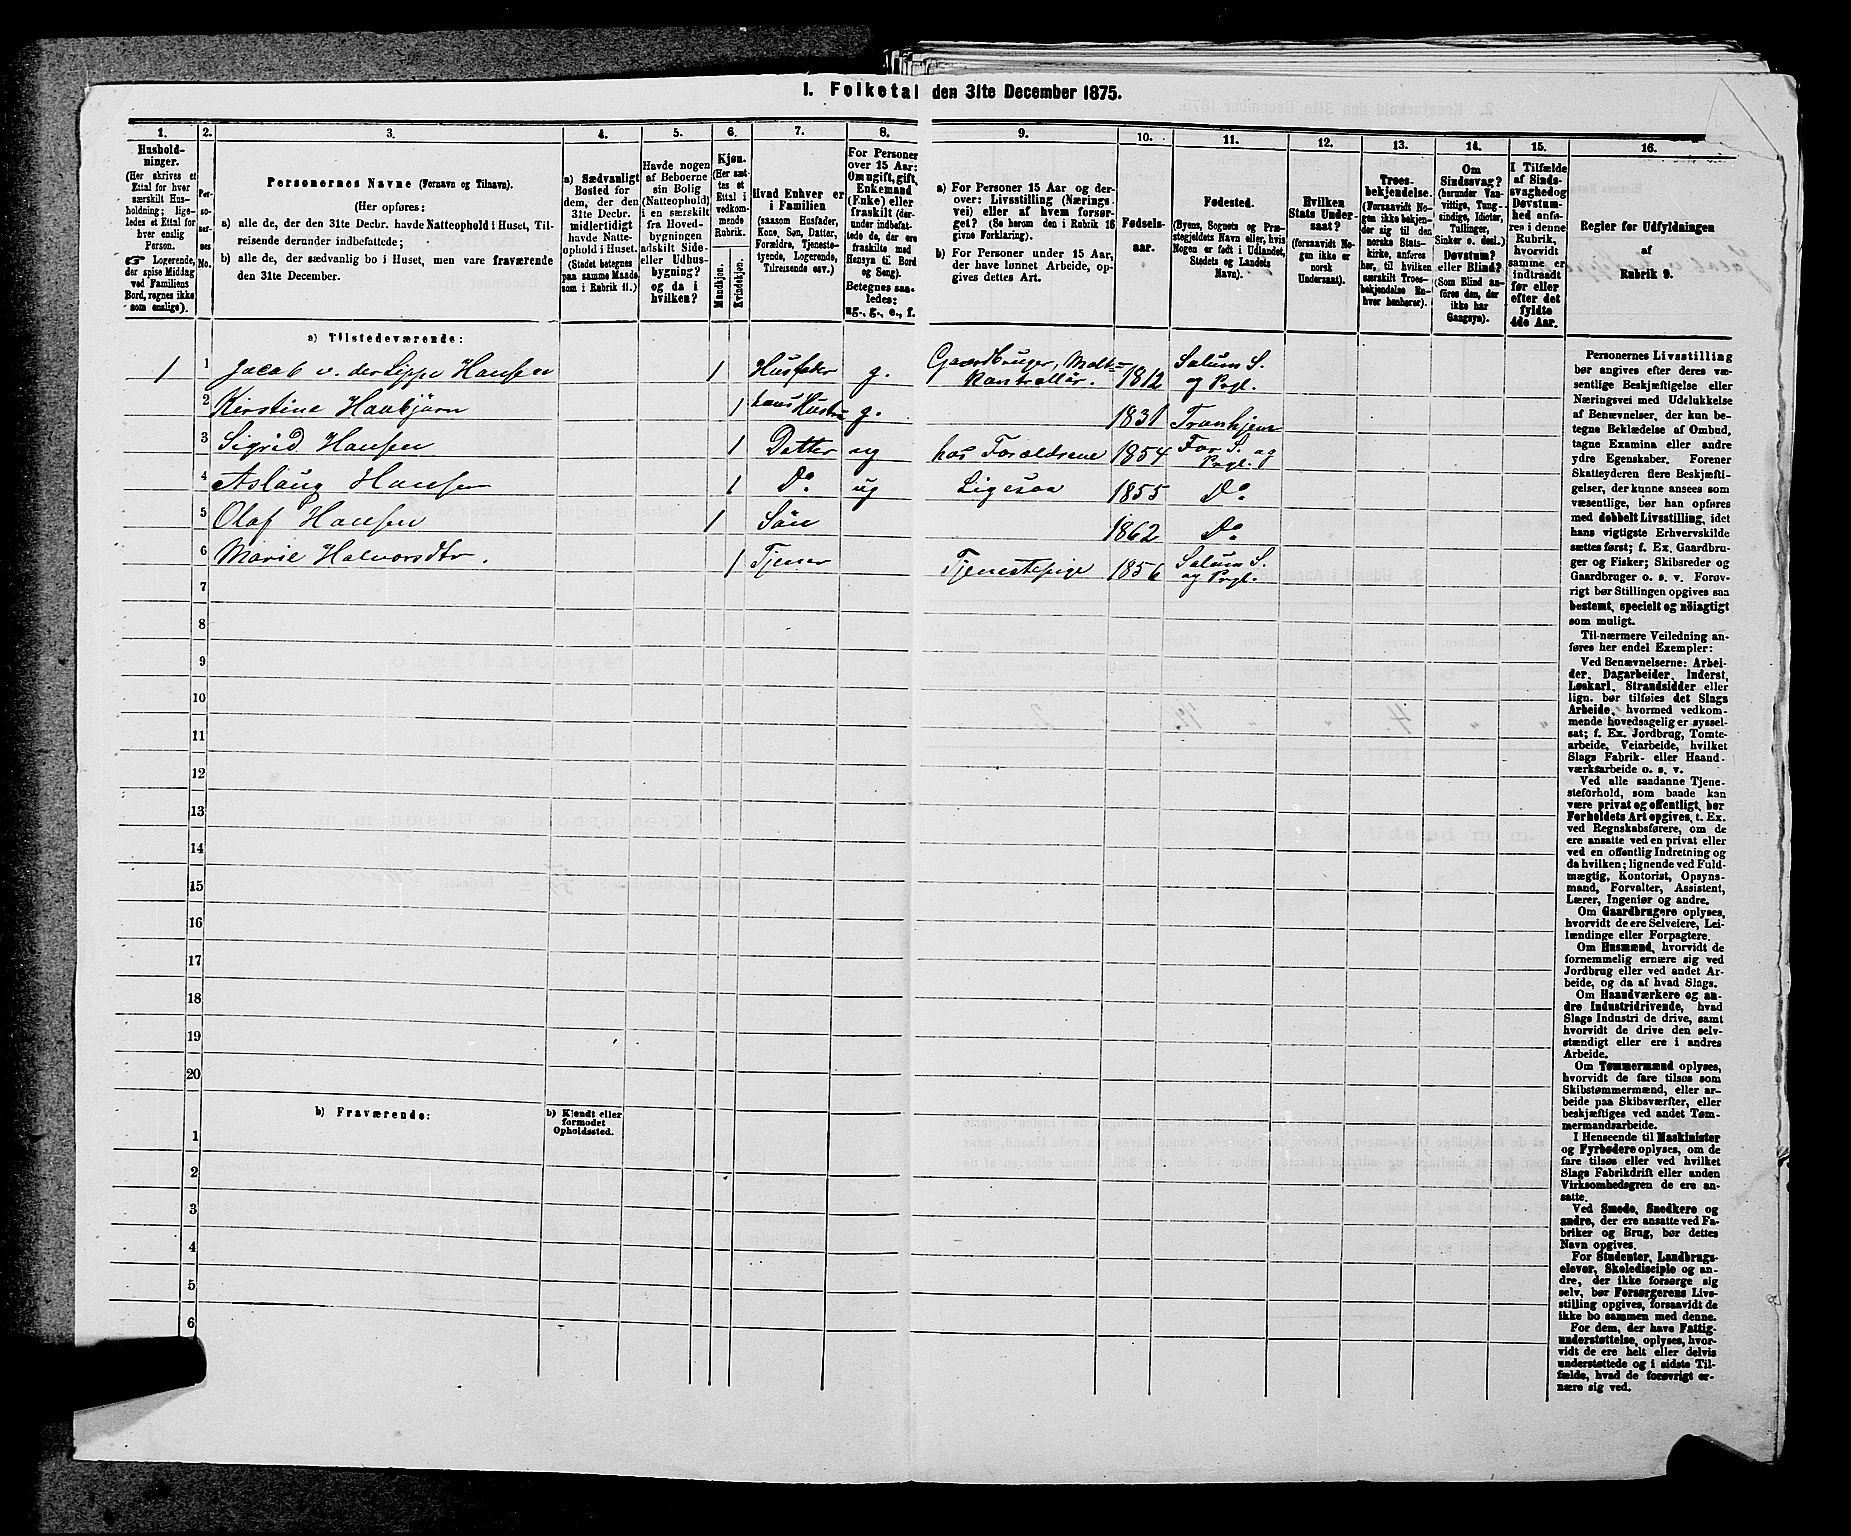 I. Folketal den 31te December 1875.
1. 2. 3. 4. 5. 6. 7. 8. 9. 10. 11. 12. 13. 14. 15. 16.
Hushold-
ninger.
(Her skrives et
Ettal for hver
særskilt Hus-
holdning; lige-
ledes et Ettal for
hver enslig
Person.
☞ Logerende,
der spise Middag
ved Familiens
Bord, regnes ikke
som enslige).
Per-
so-
ner-
nes
No.
Personernes Navne (Fornavn og Tilnavn).
(Her opføres:
a) alle de, der den 31te Decbr. havde Natteophold i Huset, Til-
reisende derunder indbefattede;
b) alle de, der sædvanlig bo i Huset, men vare fraværende
den 31te December.
a) Sædvanligt
Bosted for
dem, der den
31te Decbr.
midlertidigt
havde Natte-
ophold i Huset.
(Stedet betegnes
paa samme Maade
som i Rubrik 11.)
Havde nogen
af Beboerne
sin Bolig
(Natteophold)
i en særskilt
fra Hoved-
bygningen
adskilt Side-
eller Udhus-
bygning?
og da i
hvilken?
Kjøn.
(Her sæt-
tes et
Ettal i
vedkom-
mende
Rubrik.
Mandkjøn.
Kvindekjøn.
Hvad Enhver er
i Familien
(saasom Husfader,
Kone, Søn, Datter,
Forældre, Tjeneste-
tyende, Logerende,
Tilreisende osv.)
For Personer
over 15 Aar:
Om ugift, gift,
Enkemand
(Enke) eller
fraskilt (der-
under indbefat-
tede de, der ere
fraskilte med
Hensyn til Bord
og Seng).
Betegnes saa-
ledes:
ug., g., e., f.
a) For Personer 15 Aar og der-
over: Livsstilling (Nærings-
vei) eller af hvem forsør-
get? (Se herom den i Rubrik 16
givne Forklaring).
b) For Personer under 15 Aar,
der have lønnet Arbeide, op-
gives dettes Art.
Fødsels-
aar.
Fødested.
(Byens, Sognets og Præ-
stegjeldets Navn eller, hvis
Nogen er født i Udlandet,
Stedets og Landets
Navn).
Hvilken
Stats Under-
saat?
(forsaavidt No-
gen ikke er
norsk
Undersaat).
Troes-
bekjendelse.
(Forsaavidt Nogen
ikke bekjen-
der sig til den
norske Stats-
kirke, anføres
her, til hvilken
særskilt Troes-
bekjendelse En-
hver henhører).
Om
Sindssvag?
(herunder Van-
vittige, Tung-
sindige, Idioter,
Tullinger,
Sinker o. desl.).
Døvstum?
eller Blind?
(Som Blind an-
føres den, der
ikke har
Gangsyn).
I Tilfælde
af Sinds-
svaghed og
Døvstum-
hed anfø-
res i denne
Rubrik,
hvorvidt
samme er
indtraadt
før eller
efter det
fyldte
4de Aar.
Regler for Udfyldningen
af
Rubrik 9.
a) Tilstedeværende:
1 1 Jacob v. der Lippe Hansen 1 Husfader g. Gaardbruger, Malt-
kontrollør. 1812 Solum S.
og Prgl.
2 Kirstine Haubjørn 1 hans Hustru g. 1831 Tronhjem
3 Sigrid Hansen 1 Datter ug hos Forældrene 1854 For S. og
Prgl.
4 Aslaug Hansen 1 Do. ug Ligesaa 1855 Do.
5 Olaf Hansen 1 Søn 1862 Do.
6 Marie Halvorsdtr. 1 Tjener Tjenestepige 1856 Solum S.
og Prgl.
7
8
9
10
11
12
13
14
15
16
17
18
19
20
b) Fraværende:
b) Kjendt eller
formodet
Opholdssted.
1
2
3
4
5
6
Personernes Livsstilling
bør angives efter deres væ-
sentlige Beskjæftigelse eller
Næringsvei med Udelukkelse
af Benævnelser, der kun be-
tegne Beklædelse af Ombud,
tagne Examina eller andre
ydre Egenskaber. Forener
Skatteyderen flere Beskjæfti-
gelser, der kunne ansees som
væsentlige, bør han opføres
med dobbelt Livsstilling, idet
hans vigtigste Erhvervskilde
sættes først; f. Ex. Gaardbru-
ger og Fisker; Skibsreder og
Gaardbruger o. s. v. Forøv-
rigt bør Stillingen opgives saa
bestemt, specielt og nöiagtigt
som muligt.
Til nærmere Veiledning an-
føres her endel Exempler:
Ved Benævnelserne: Arbei-
der, Dagarbeider, Inderst,
Løskarl, Strandsidder eller
lign. bør tilføies det Slags
Arbeide, hvormed vedkom-
mende hovedsagelig er syssel-
sat; f. Ex. Jordbrug, Tomte-
arbeide, Veiarbeide, hvilket
Slags Fabrik- eller Haand-
værksarbeide o. s. v.
Ved alle saadanne Tjene-
steforhold, som baade kan
være privat og offentligt, bør
Forholdets Art opgives, t. Ex.
ved Regnskabsførere, om de
ere ansatte ved en privat eller
ved en offentlig Indretning og
da hvilken; lignende ved Fuld-
mægtig, Kontorist, Opsyns-
mand, Forvalter, Assistent,
Lærer, Ingeniør og andre.
Om Gaardbrugere oplyses,
hvorvidt de ere Selveiere, Lei-
lændinge eller Forpagtere.
Om Husmænd, hvorvidt de
fornemmelig ernære sig ved
Jordbrug eller ved andet Ar-
beide, og da af hvad Slags.
Om Haandværkere og an-
dre Industridrivende, hvad
Slags Industri de drive, samt
hvorvidt de drive den selv-
stændigt eller ere i andres
Arbeide.
Om Tømmermænd oplyses,
hvorvidt de fare tilsøs som
Skibstømmermænd, eller ar-
beide paa Skibsværfter, eller
beskjæftiges ved andet Tøm-
mermandsarbeide.
I Henseende til Maskinister
og Fyrbødere oplyses, om de
fare tilsøs eller ved hvilket
Slags Fabrikdrift eller anden
Virksomhedsgren de ere an-
satte.
Ved Smede, Snedkere og
andre, der ere ansatte ved Fa-
briker og Brug, bør dettes
Navn opgives.
For Studenter, Landbrugs-
elever, Skoledisciple og an-
dre, der ikke forsørge sig
selv, bør Forsørgerens Livs-
stilling opgives, forsaavidt de
ikke bo sammen med denne.
For dem, der have Fattig-
understøttelse, oplyses, hvor-
vidt de ere helt eller delvis
understøttede og i sidste Til-
fælde, hvad de forøvrigt er-
nære sig ved.